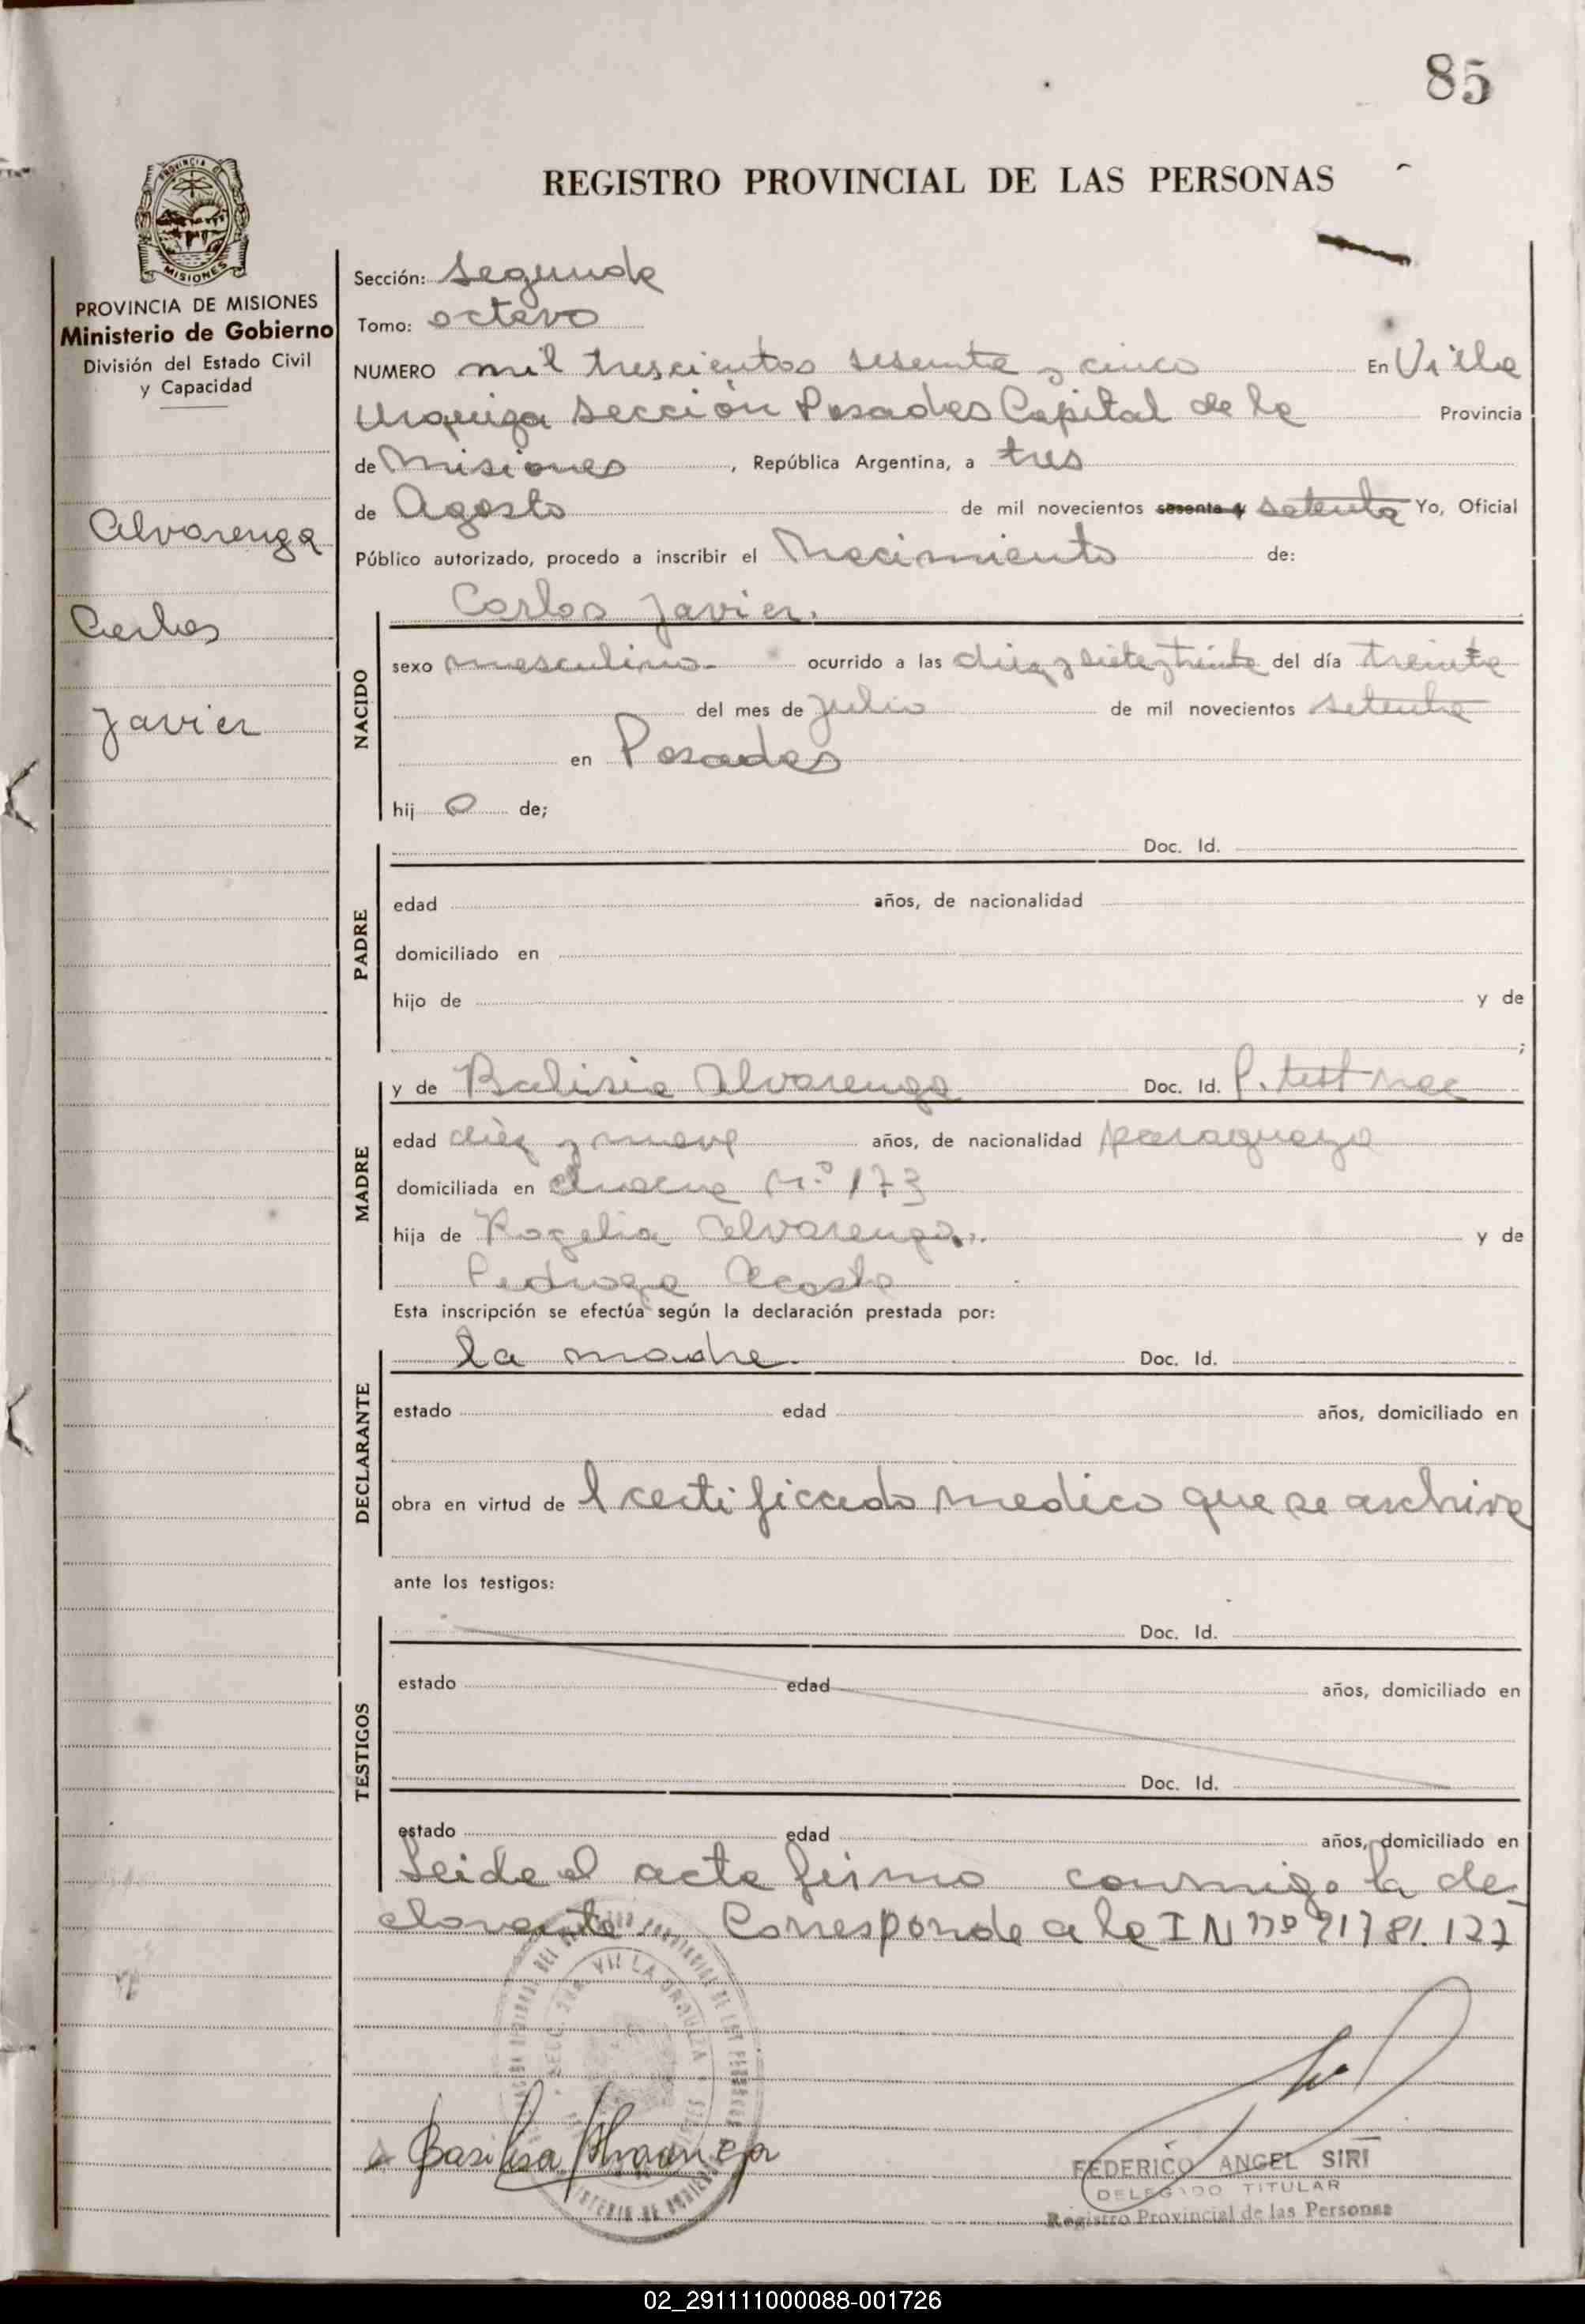 85
REGISTRO PROVINCIAL DE LAS PERSONAS
PROVINCIA
MISIONES
PROVINCIA DE MISIONES
Ministerio de Gobierno
División del Estado Civil
y Capacidad
Alvarenga
Carlos
Javier
Sección: Segunda
Tomo: octavo
NUMERO mil trescientos sesenta y cinco En Villa
Urquiza Sección Posadas Capital de la Provincia
de Misiones, República Argentina, a tres
de Agosto de mil novecientos sesenta y setenta Yo, Oficial
Público autorizado, procedo a inscribir el Nacimiento de:
Carlos Javier.
NACIDO
sexo masculino ocurrido a las diez y siete y treinta del día treinta
del mes de julio de mil novecientos setenta
en Posadas
hij o de;
PADRE
Doc. Id.
edad años, de nacionalidad
domiciliado en
hijo de y de
;
MADRE
y de Doc. Id. P. test nac
Alvarenga
edad diez y nueve años, de nacionalidad paraguaya
domiciliada en Nº 173
hija de Rogelia Alvarenga y de
Pedroza Acosta
Esta inscripción se efectúa según la declaración prestada por:
DECLARANTE
la madre Doc. Id.
estado edad años, domiciliado en
obra en virtud de l certificado medico que se archiva
ante los testigos:
TESTIGOS
Doc. Id.
estado edad años, domiciliado en
Doc. Id.
estado edad años, domiciliado en
Leida el acta firma conmigo la de-
clarante Corresponde a la I N nº 21781.127
Basilisa Alvarenga
FEDERICO ANGEL SIRI
DELEGADO TITULAR
Registro Provincial de las Personas
02_291111000088-001726